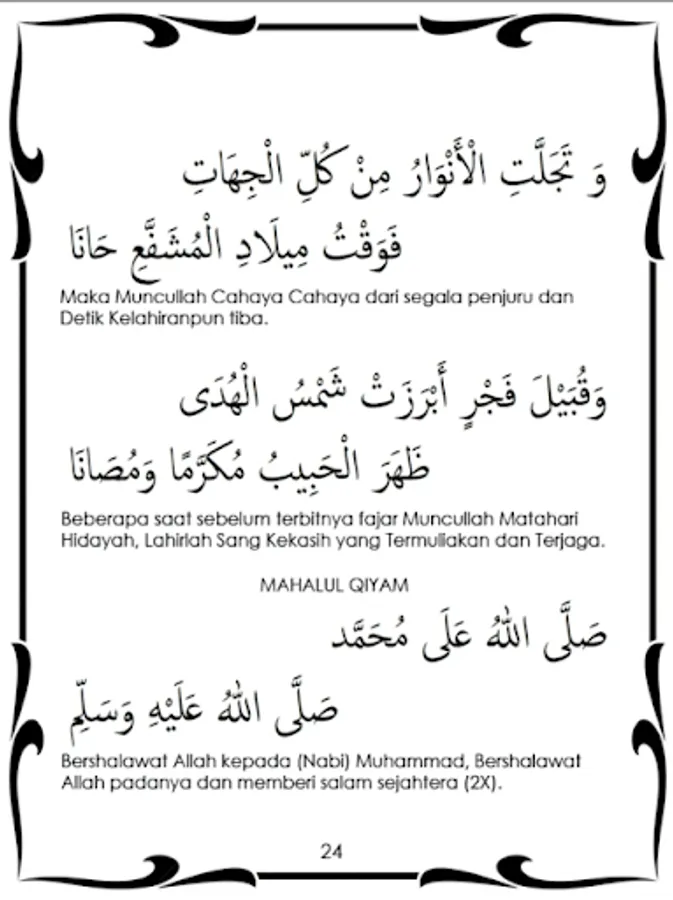 وَ تَجَلَّتِ الْأَنْوَارُ مِنْ كُلِّ الْجِهَاتِ
فَوَقْتُ مِيلَادِ الْمُشَفَّعِ حَانَا
Maka Muncullah Cahaya Cahaya dari segala penjuru dan
Detik Kelahiranpun tiba.
وَقُبَيْلَ فَجْرٍ أَبْرَزَتْ شَمْسُ الْهُدَى
ظَهَرَ الْحَبِيبُ مُكَرَّمًا وَمُصَانَا
Beberapa saat sebelum terbitnya fajar Muncullah Matahari
Hidayah, Lahirlah Sang Kekasih yang Termuliakan dan Terjaga.
MAHALUL QIYAM
صَلَّى اللهُ عَلَى مُحَمَّد
صَلَّى اللهُ عَلَيْهِ وَسَلِّمِ
Bershalawat Allah kepada (Nabi) Muhammad, Bershalawat
Allah padanya dan memberi salam sejahtera (2X).
24